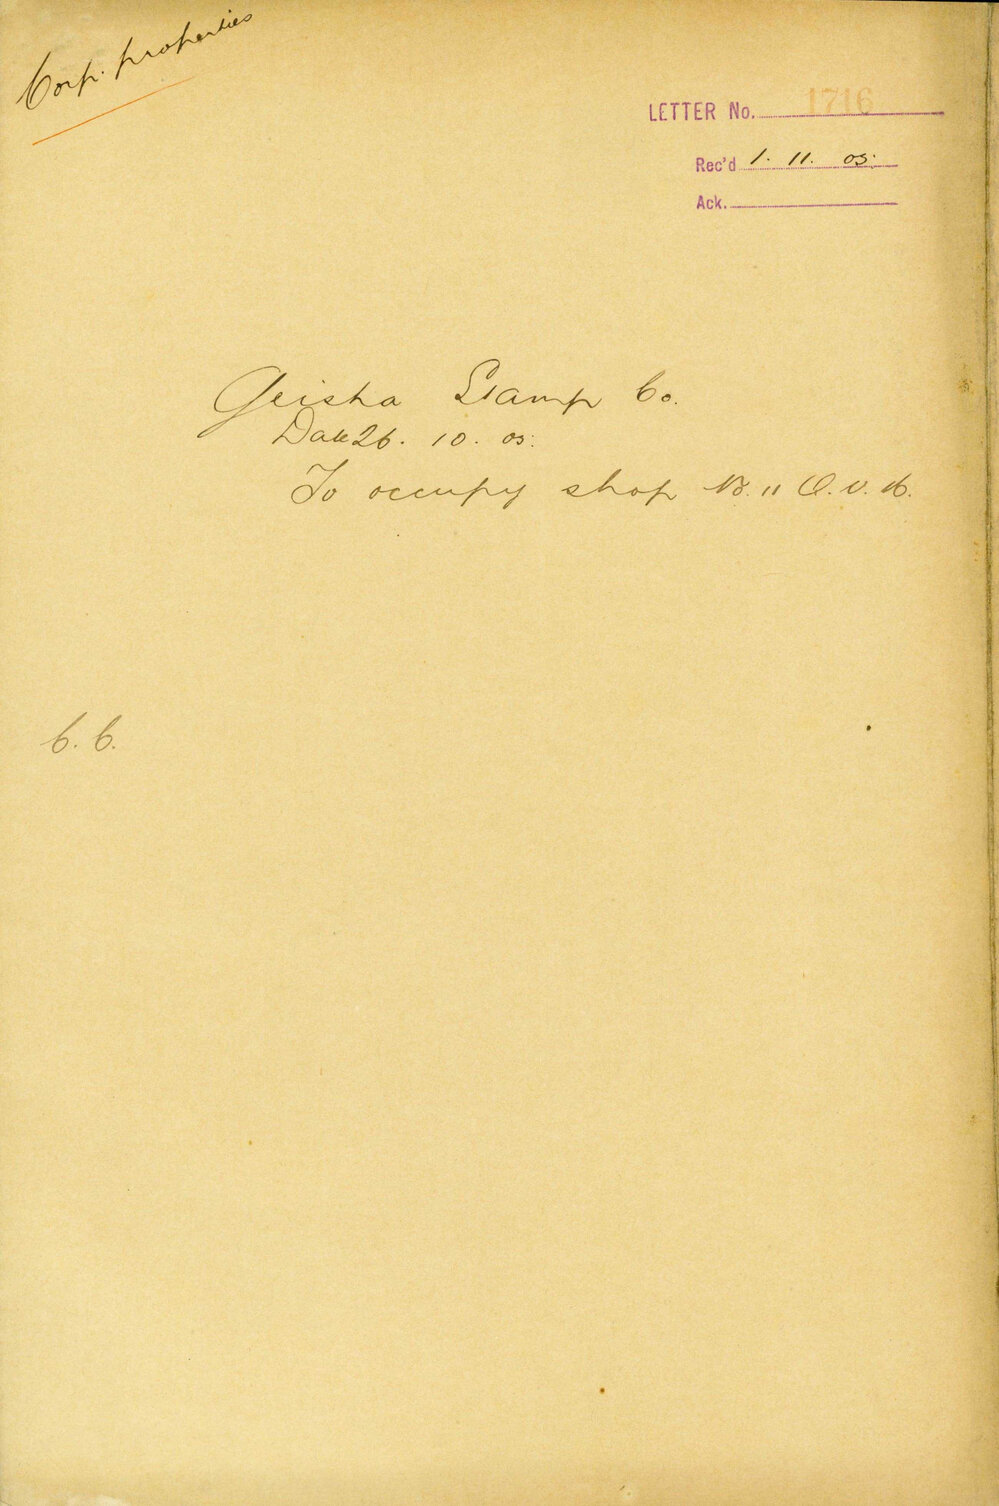 Corp. properties
LETTER No. 1716
Rec'd 1. 11. 05.
Ack.
Geisha Stamp Co.
Date 26. 10. 05.
To occupy shop No. 11 Q. V. M.
C. C.